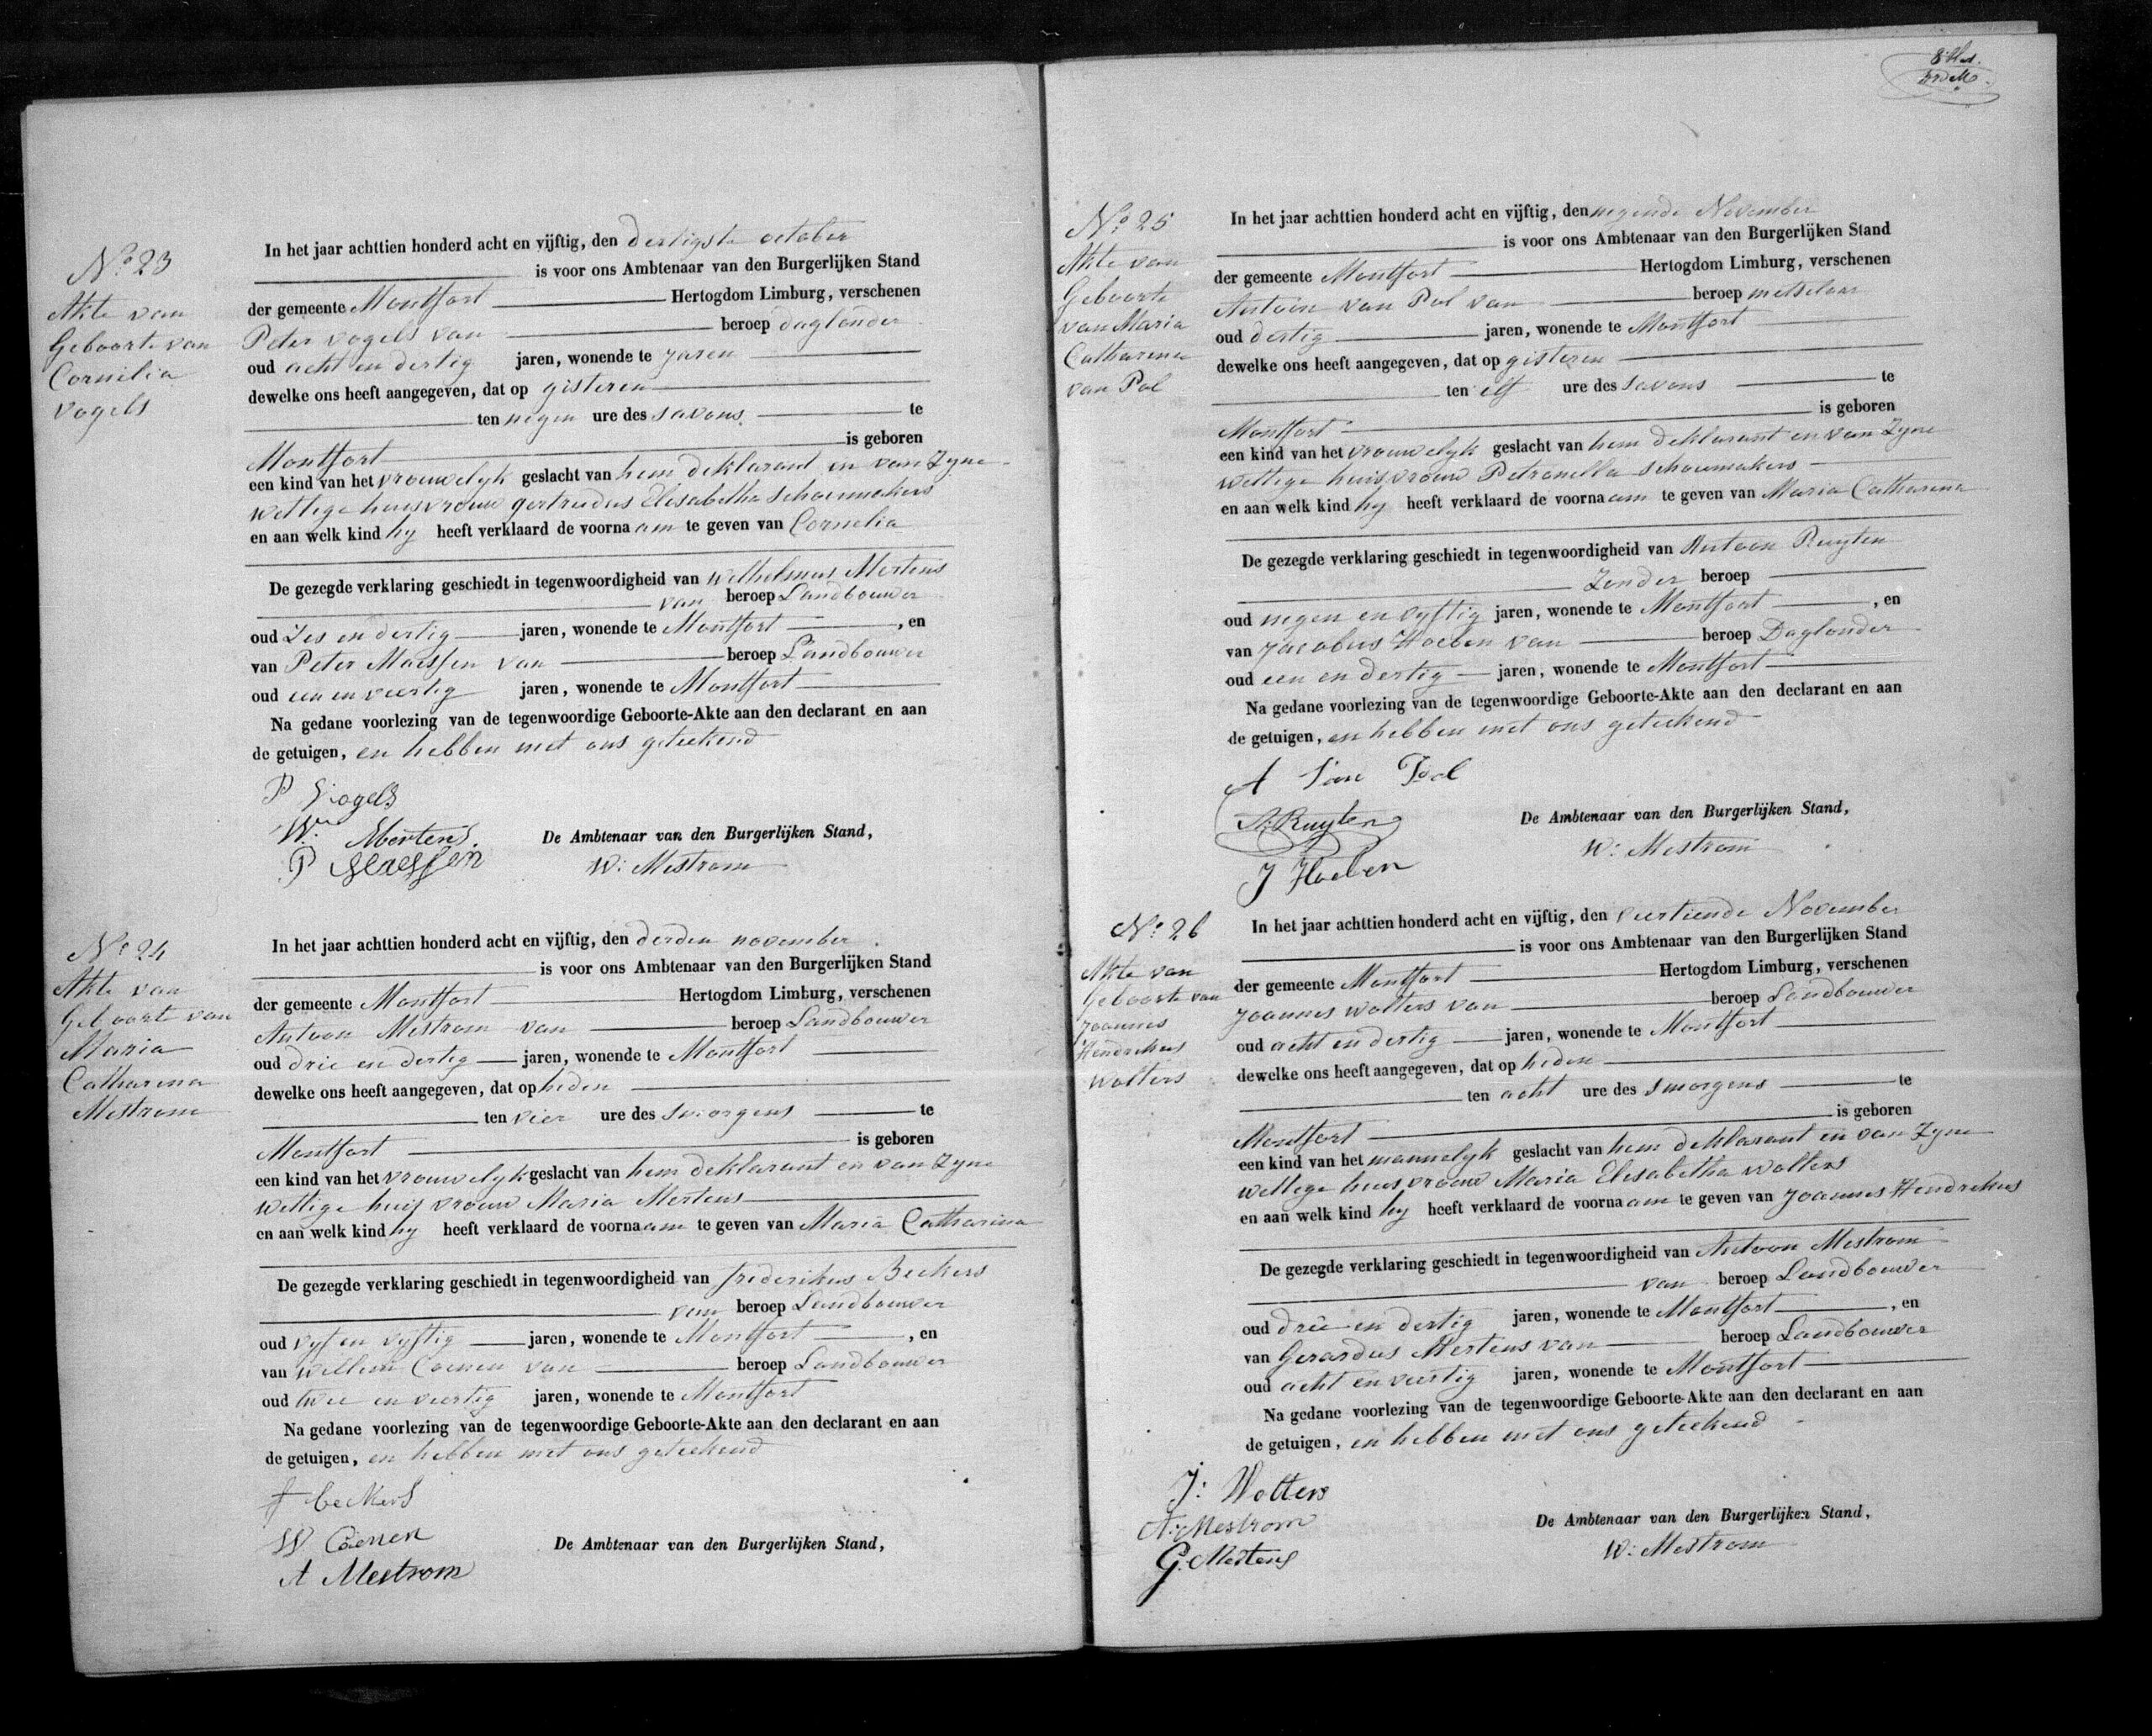 No 23
Akte van
Geboorte van
Cornelia
Vogels
In het jaar achttien honderd acht en vijftig, den dertigste october
is voor ons Ambtenaar van den Burgerlijken Stand
der gemeente Montfort Hertogdom Limburg, verschenen
Peter Vogels van beroep Daglonder
oud acht en dertig jaren, wonende te jaren
dewelke ons heeft aangegeven, dat op gisteren
ten negen ure des savons te
Montfort is geboren
een kind van het vrouwelyk geslacht van hem deklarant en van Zyne
wettige huisvrouw gertrudus Elisabetha Schoenmakers
en aan welk kind hy heeft verklaard de voornaam te geven van Cornelia
De gezegde verklaring geschiedt in tegenwoordigheid van Welhelmus Mertens
van beroep Landbouwer
oud Zes en dertig jaren, wonende te Montfort , en
van Peter Maessen van beroep Landbouwer
oud een en veertig jaren, wonende te Montfort
Na gedane voorlezing van de tegenwoordige Geboorte-Akte aan den declarant en aan
de getuigen, en hebben met ons geteekend
P Vogels
W. Mertens.
P
De Ambtenaar van den Burgerlijken Stand,
W: Mestrom
No 24
Akte van
Geboorte van
Maria
Catharina
Mestrom
In het jaar achttien honderd acht en vijftig, den derden november
is voor ons Ambtenaar van den Burgerlijken Stand
der gemeente Montfort Hertogdom Limburg, verschenen
Antoon Mestrom van beroep Landbouwer
oud drie en dertig jaren, wonende te Montfort
dewelke ons heeft aangegeven, dat op heden
ten vier ure des smorgens te
Montfort is geboren
een kind van het vrouwelyk geslacht van hem deklarant en van Zyne
wettige huisvrouw Maria Mertens
en aan welk kind hy heeft verklaard de voornaam te geven van Maria Catharina
De gezegde verklaring geschiedt in tegenwoordigheid van frederikus Beckers
van beroep Landbouwer
oud vyf en vyftig jaren, wonende te Montfort , en
van Willem Coenen van beroep Landbouwer
oud twee en veertig jaren, wonende te Montfort
Na gedane voorlezing van de tegenwoordige Geboorte-Akte aan den declarant en aan
de getuigen, en hebben met ons geteekend
f beckers
W Coenen
A Mestrom
De Ambtenaar van den Burgerlijken Stand,
No 25
Akte van
Geboorte
van Maria
Catharina
van Pol
In het jaar achttien honderd acht en vijftig, den negende November
is voor ons Ambtenaar van den Burgerlijken Stand
der gemeente Montfort Hertogdom Limburg, verschenen
Antoon van Pol van beroep metselaar
oud dertig jaren, wonende te Montfort
dewelke ons heeft aangegeven, dat op gisteren
ten elf ure des savons te
Montfort is geboren
een kind van het vrouwelyk geslacht van hem deklarant en van Zyne
wettige huisvrouw Petronella Schoumakers
en aan welk kind hy heeft verklaard de voornaam te geven van Maria Catharina
De gezegde verklaring geschiedt in tegenwoordigheid van Antoon Ruyten
Zonder beroep
oud negen en vyftig jaren, wonende te Montfort , en
van Jacobus Hoeben van beroep Daglonder
oud een en dertig jaren, wonende te Montfort
Na gedane voorlezing van de tegenwoordige Geboorte-Akte aan den declarant en aan
de getuigen, en hebben met ons geteekend
A Van Pol
A: Ruyten
J Hoeben
De Ambtenaar van den Burgerlijken Stand,
W: Mestrom
No 26
Akte van
Geboorte van
Joannes
Hendrikus
Wolters
In het jaar achttien honderd acht en vijftig, den veertiende November
is voor ons Ambtenaar van den Burgerlijken Stand
der gemeente Montfort Hertogdom Limburg, verschenen
Joannes Wolters van beroep Landbouwer
oud acht en dertig jaren, wonende te Montfort
dewelke ons heeft aangegeven, dat op heden
ten acht ure des smorgens te
Montfort is geboren
een kind van het mannelyk geslacht van hem deklarant en van Zyne
wettege huisvrouw Maria Elisabetha Wolters
en aan welk kind hy heeft verklaard de voornaam te geven van Joannes Hendrikus
De gezegde verklaring geschiedt in tegenwoordigheid van Antoon Mestrom
van beroep Landbouwer
oud drie en dertig jaren, wonende te Montfort , en
van Gerardus Mertens van beroep Landbouwer
oud acht en veertig jaren, wonende te Montfort
Na gedane voorlezing van de tegenwoordige Geboorte-Akte aan den declarant en aan
de getuigen, en hebben met ons geteekend
J: Wolters
A: Mestrom
G: Mertens
De Ambtenaar van den Burgerlijken Stand,
W: Mestrom